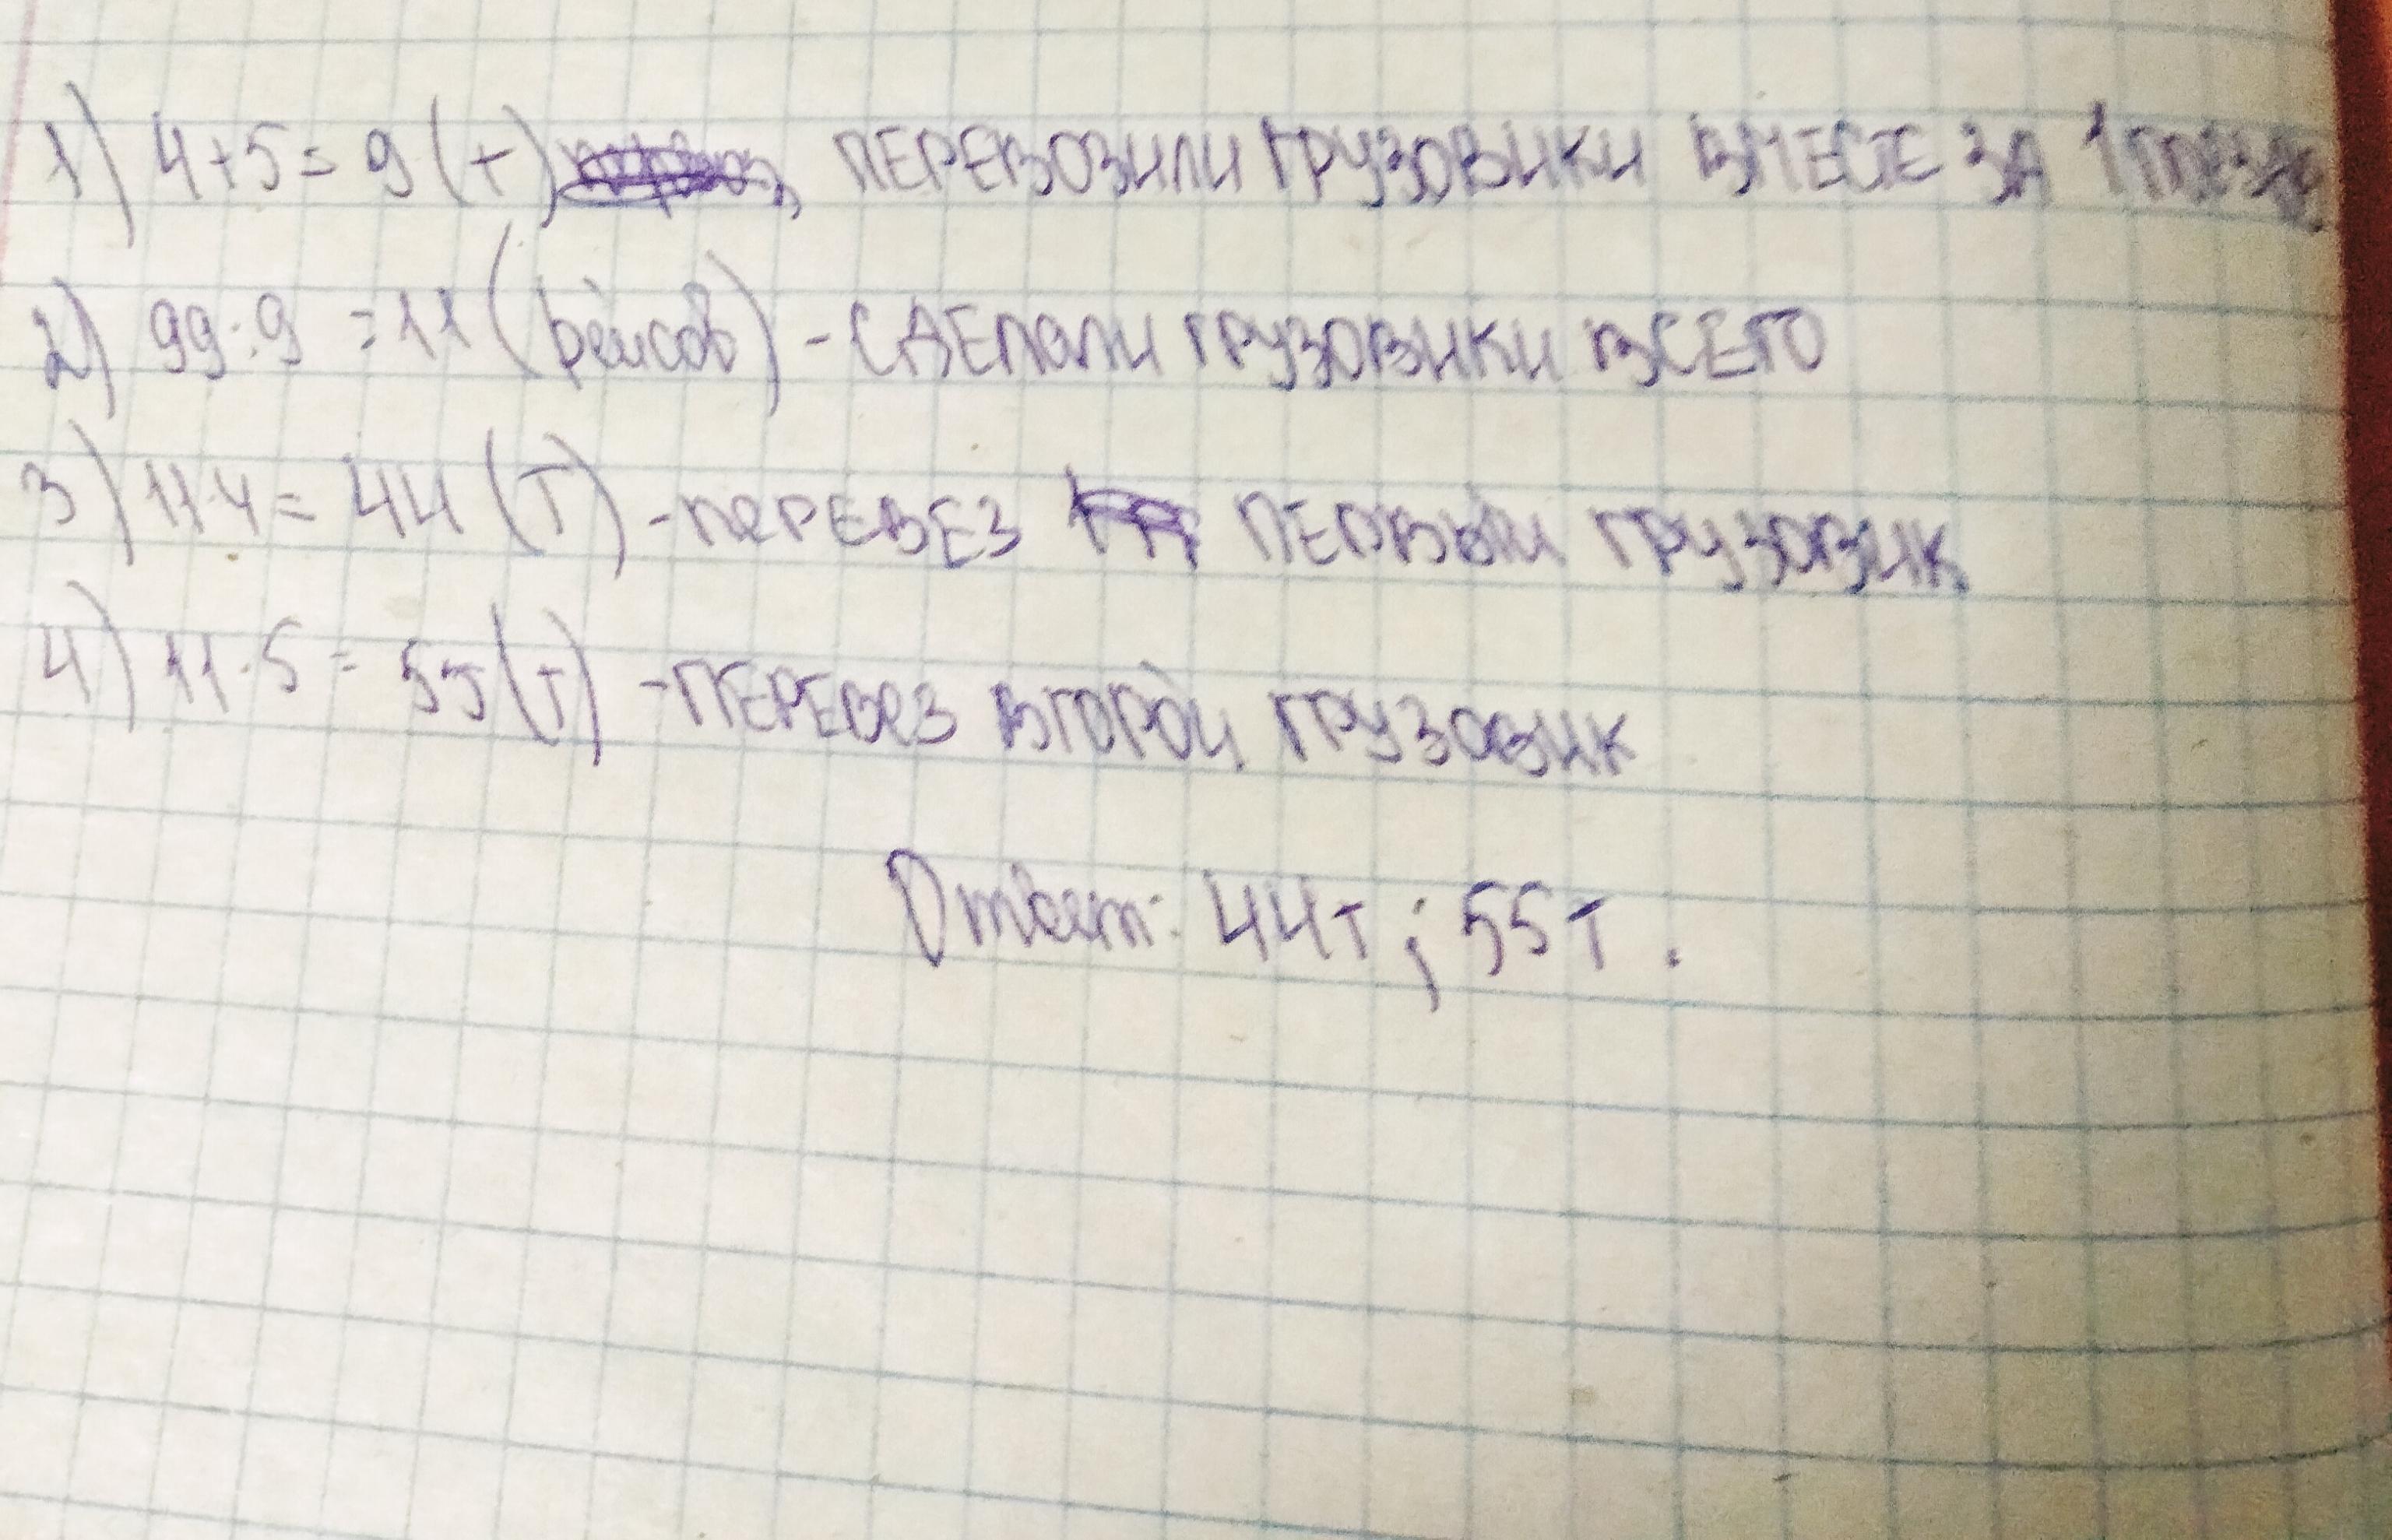 1) 4+5= 9 (т) ПЕРЕВОЗИЛИ ГРУЗОВИКИ ВМЕСТЕ ЗА 1
2) 99:9 =11 (рейсов) - СДЕЛАЛИ ГРУЗОВИКИ ВСЕГО
3) 11·4= 44 (Т) -ПЕРЕВЕЗ ПЕРВЫЙ ГРУЗОВИК
4) 11·5= 55 (т) -ПЕРЕВЕЗ ВТОРОЙ ГРУЗОВИК
Ответ: 44т ; 55т .